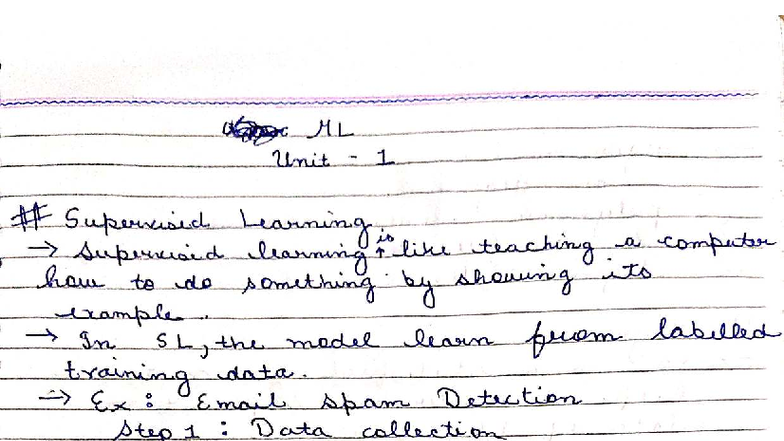 ML
Unit - 1
## Supervised Learning
→ Supervised learning is like teaching a computer
how to do something by showing its
example.
→ In SL, the model learn from labelled
training data.
→ Ex: Email spam Detection
Step 1 : Data collection